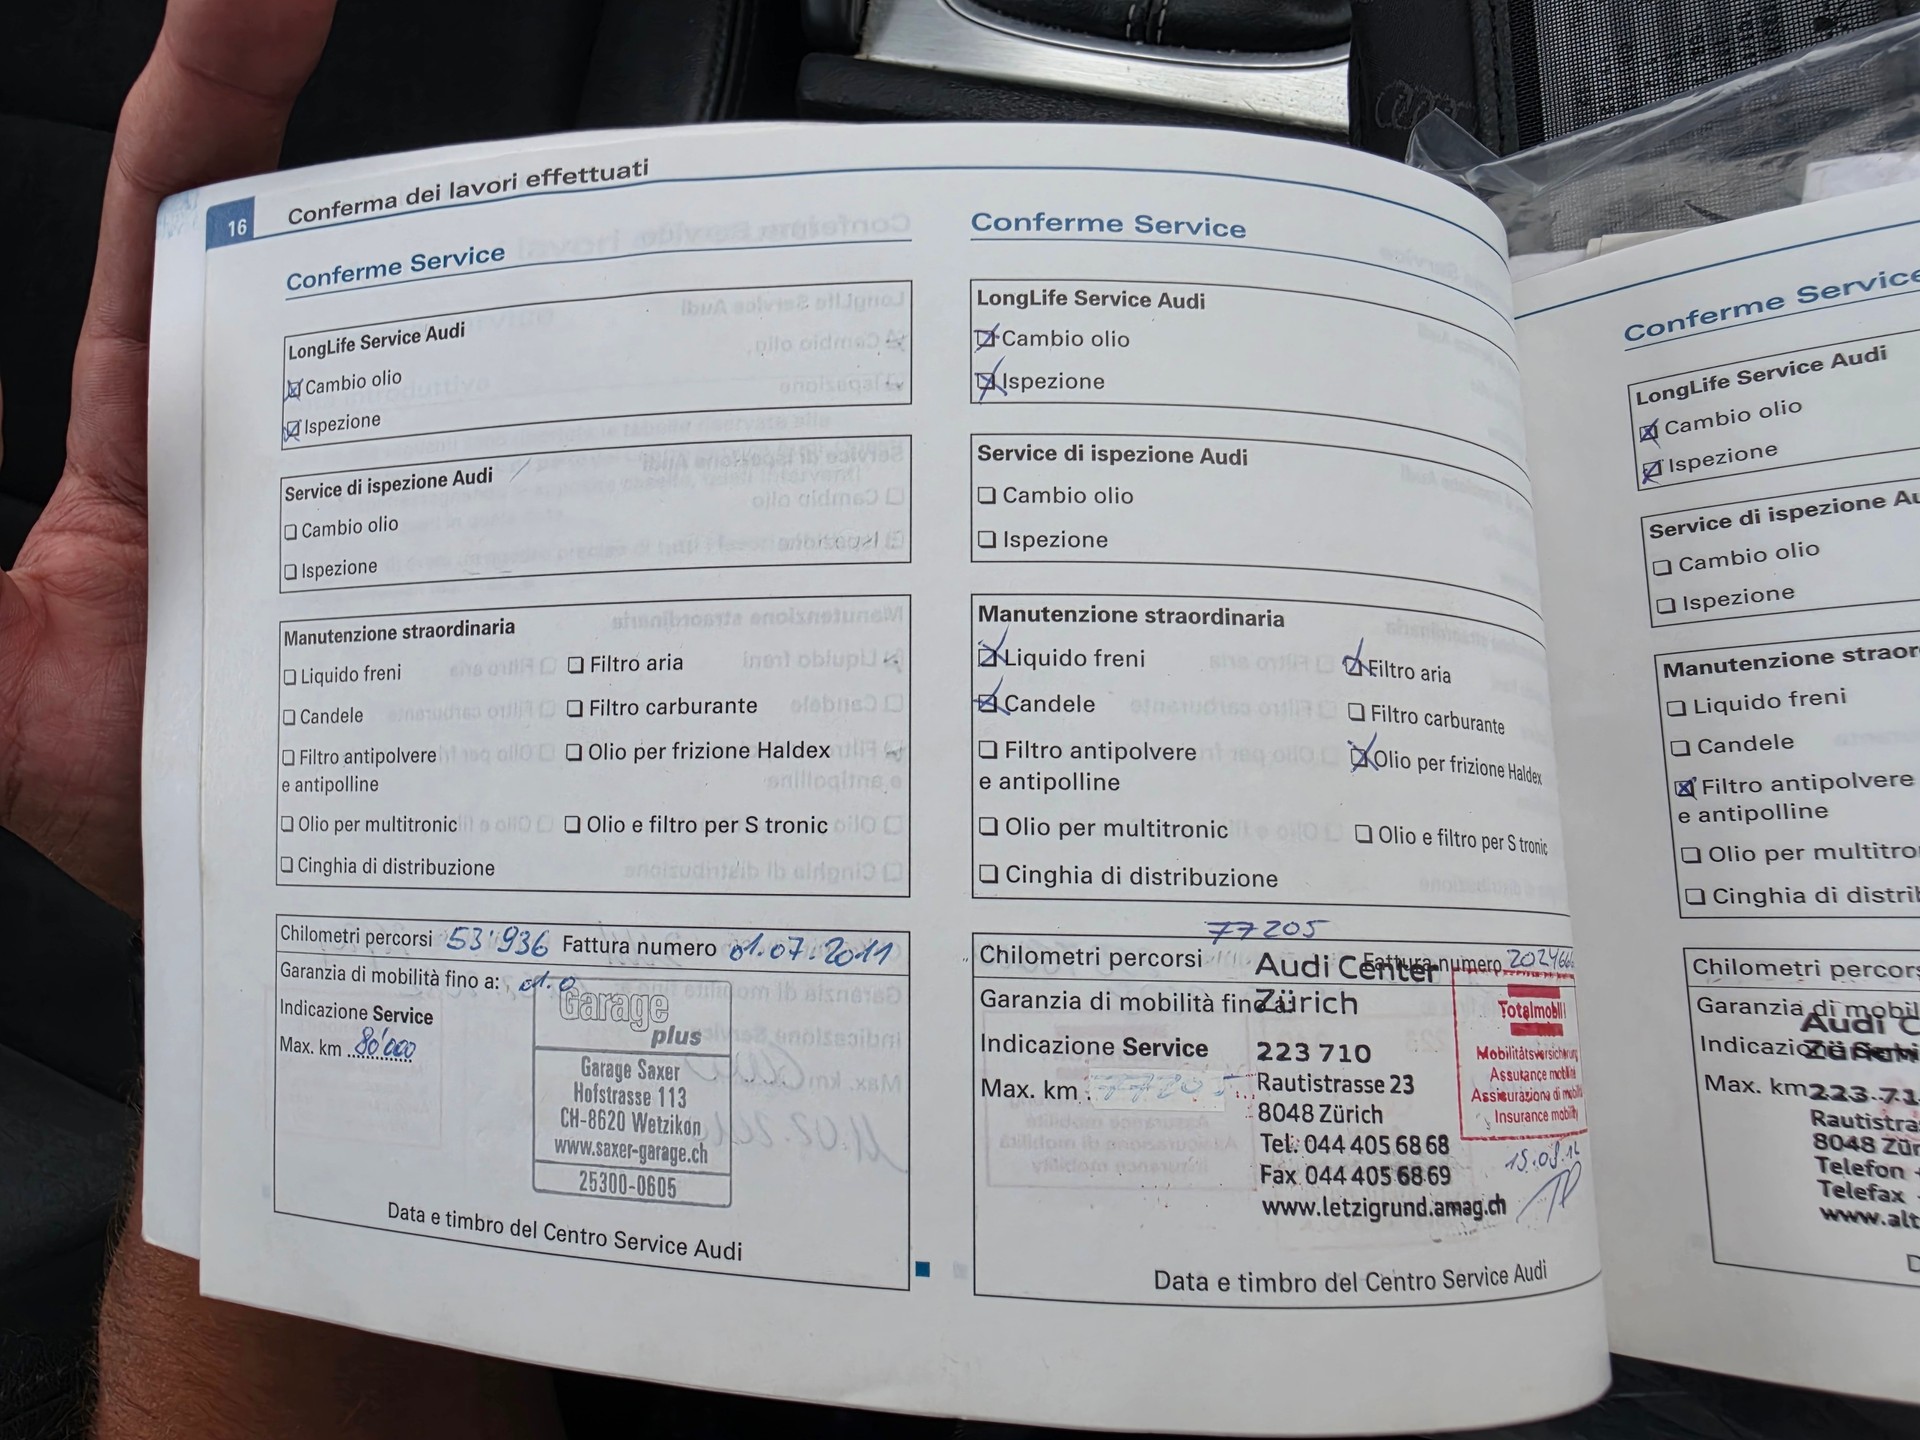 16
Conferma dei lavori effettuati
Conferme Service
LongLife Service Audi
Cambio olio
Ispezione
Service di ispezione Audi
Cambio olio
Ispezione
Manutenzione straordinaria
Liquido freni
Filtro aria
Candele
Filtro carburante
Filtro antipolvere
e antipolline
Olio per frizione Haldex
Olio per multitronic
Olio e filtro per S tronic
Cinghia di distribuzione
Chilometri percorsi 53'936 Fattura numero 01.07.2011
Garanzia di mobilità fino a: 01.0
Indicazione Service
Max. km 80'000
Garage
plus
Garage Saxer
Hofstrasse 113
CH-8620 Wetzikon
www.saxer-garage.ch
25300-0605
Data e timbro del Centro Service Audi
Conferme Service
LongLife Service Audi
Cambio olio
Ispezione
Service di ispezione Audi
Cambio olio
Ispezione
Manutenzione straordinaria
Liquido freni
Filtro aria
Candele
Filtro carburante
Filtro antipolvere
e antipolline
Olio per frizione Haldex
Olio per multitronic
Olio e filtro per S tronic
Cinghia di distribuzione
77205
Chilometri percorsi
Fattura numero
Garanzia di mobilità fino a:
Indicazione Service
Max. km
Audi Center
Zürich
223 710
Rautistrasse 23
8048 Zürich
Tel. 044 405 68 68
Fax 044 405 68 69
www.letzigrund.amag.ch
Totalmobil!
Mobilitätsversicherung
Assurance mobilité
Assicurazione di mobil
Insurance mobility
Data e timbro del Centro Service Audi
Conferme Service
LongLife Service Audi
Cambio olio
Ispezione
Service di ispezione Au
Cambio olio
Ispezione
Manutenzione straor
Liquido freni
Candele
Filtro antipolvere
e antipolline
Olio per multitro
Cinghia di distrib
Chilometri percors
Garanzia di mobil
Audi C
Max. km
223 71
Rautistra
8048 Zür
Telefon
Telefax
www.alt
D